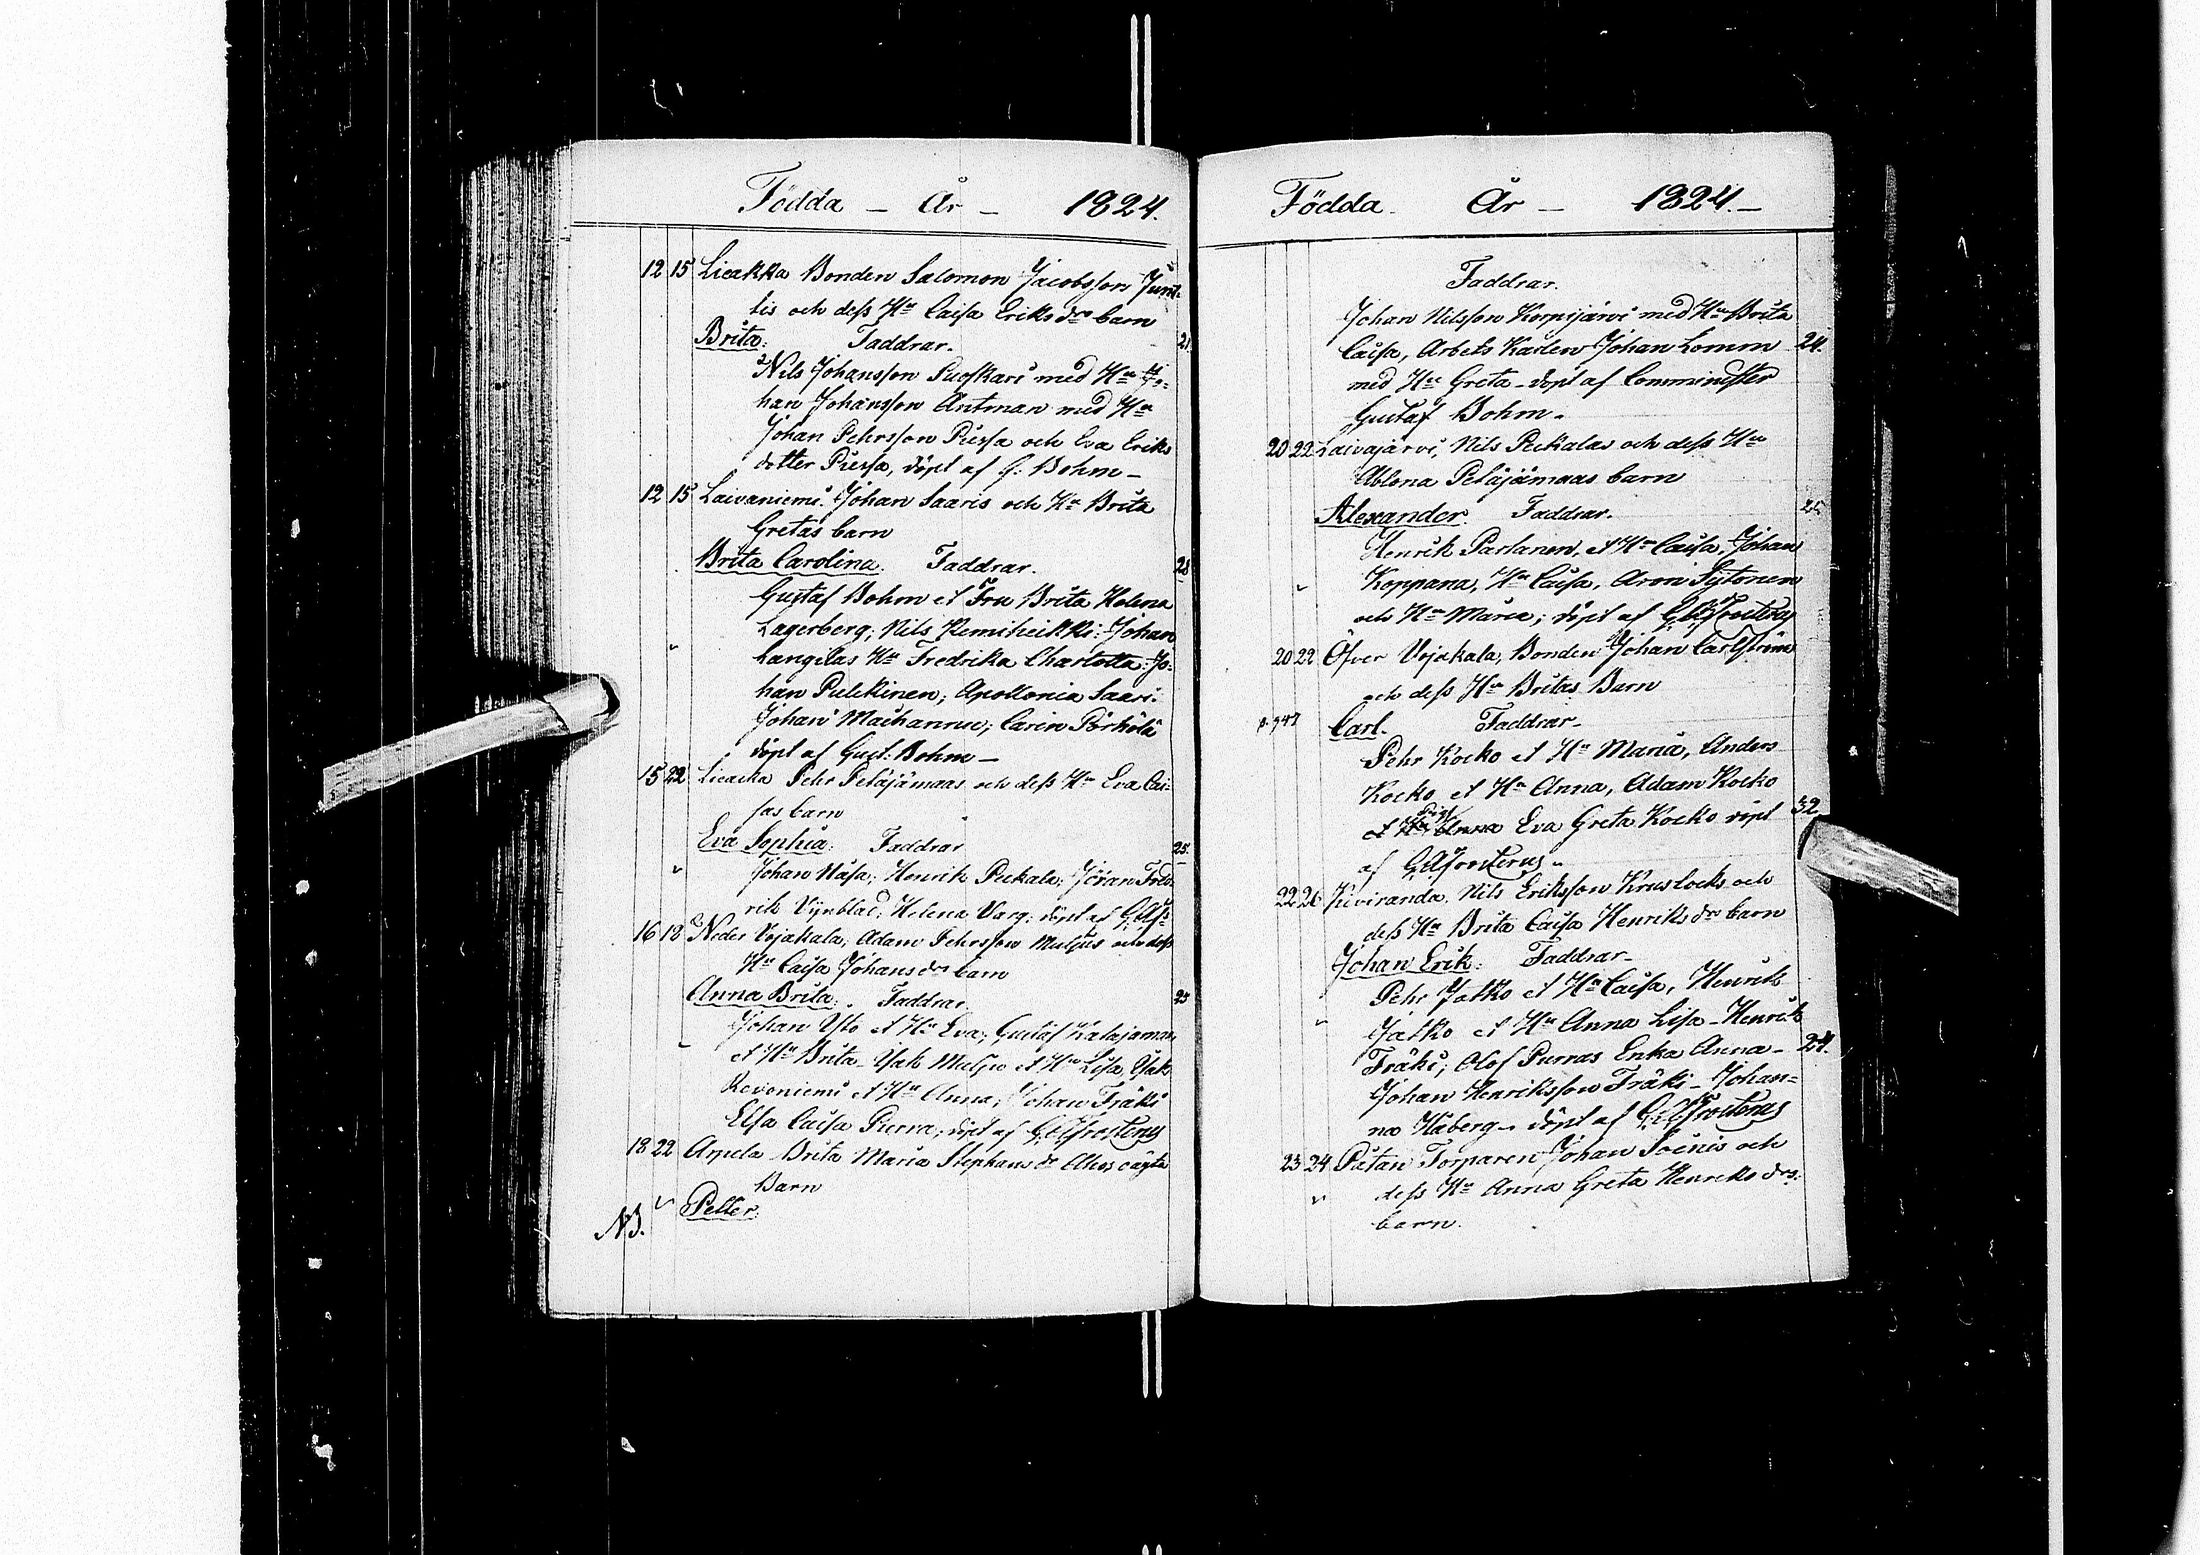 Födda – År – 1824.
12 15 Lieakka Bonden Salomon Jacobsson Junt-
tis och dess Hu Caisa Eriks dr barn
Brita: Faddrar. 21
Nils Johansson Suoskari med Hu Jo-
han Johansson Antman med Hu
Johan Pehrsson Piessa och Eva Eriks
dotter Piessa, döpt af G: Bohm –
12 15 Laivaniemi. Johan Saaris och Hu Brita
Gretas barn
Brita Carolina. Faddrar. 28
Gustaf Bohm et Fru Brita Helena
Lagerberg; Nils Kemiheikki: Johan
Langilas Hu Fredrika Charlotta: Jo-
han Pulckinen; Apollonia Saari:
Johan Maihannu; Carin Pörhölä
döpt af Gust: Bohm –
15 22 Lieacka Pehr Peläjämaas och dess Hu Eva Cai-
sas barn
Eva Sophia: Faddrar 25.
Johan Wasa; Henrik Pickala; Jöran Fred-
rik Vynblad; Helena Varg; döpt af
16 18 Neder Vojakala, Adam Pehrsson Muljus och dess
Hu Caisa Johans dr barn
Anna Brita: Faddrar 25
Johan Ylto et Hu Eva; Gustaf Kalajamaa
et Hu Brita – Isak Muljo et Hu Lisa, Isak
Revoniemi et Hu Anna; Johan Fräki
Elsa Caisa Purra; döpt af G.A. Frosterus
18 22 Arpela Brita Maria Stephans dr oägta
Barn
NB. Petter:
Födda År – 1824. –
Faddrar.
Johan Nilsson Korpijärvi med Hu Brita
Caisa, Arbets Karlen Johan Lomm 24.
med Hu Greta – döpt af Comminister
Gustaf Bohm –
20 22 Laivajärvi, Nils Pickalas och dess Hu
Ablona Peläjämaas barn
Alexander. Faddrar. 25
Henrik Parlanen, et Hu Caisa, Johan
Koppana, Hu Caisa, Aron Sytonen
och Hu Maria; döpt af G.A. Frosterus
20 22 Öfver Vojakala, Bonden Johan Carlström
och dess Hu Britas Barn
p. 947 Carl. Faddrar –
Pehr Kocko et Hu Maria, Anders
Kocko et Hu Anna, Adam Kocko
et Hu Anna Pig. Eva Greta Kocko döpt 32
af G.A. Frosterus –
22 26 Kiviranda, Nils Eriksson Kruslocks och
dess Hu Brita Caisa Henriks dr barn
Johan Erik: Faddrar –
Pehr Jatko et Hu Caisa, Henrik
Jatko et Hu Anna Lisa – Henrik
Fräki; Olof Purras Enka Anna – 24.
Johan Henriksson Fräki – Johan-
na Håberg – döpt af G.A. Frosterus
23 24 Pätan Torparen Johan Soinis och
dess Hu Anna Greta Henriks drs:
barn.